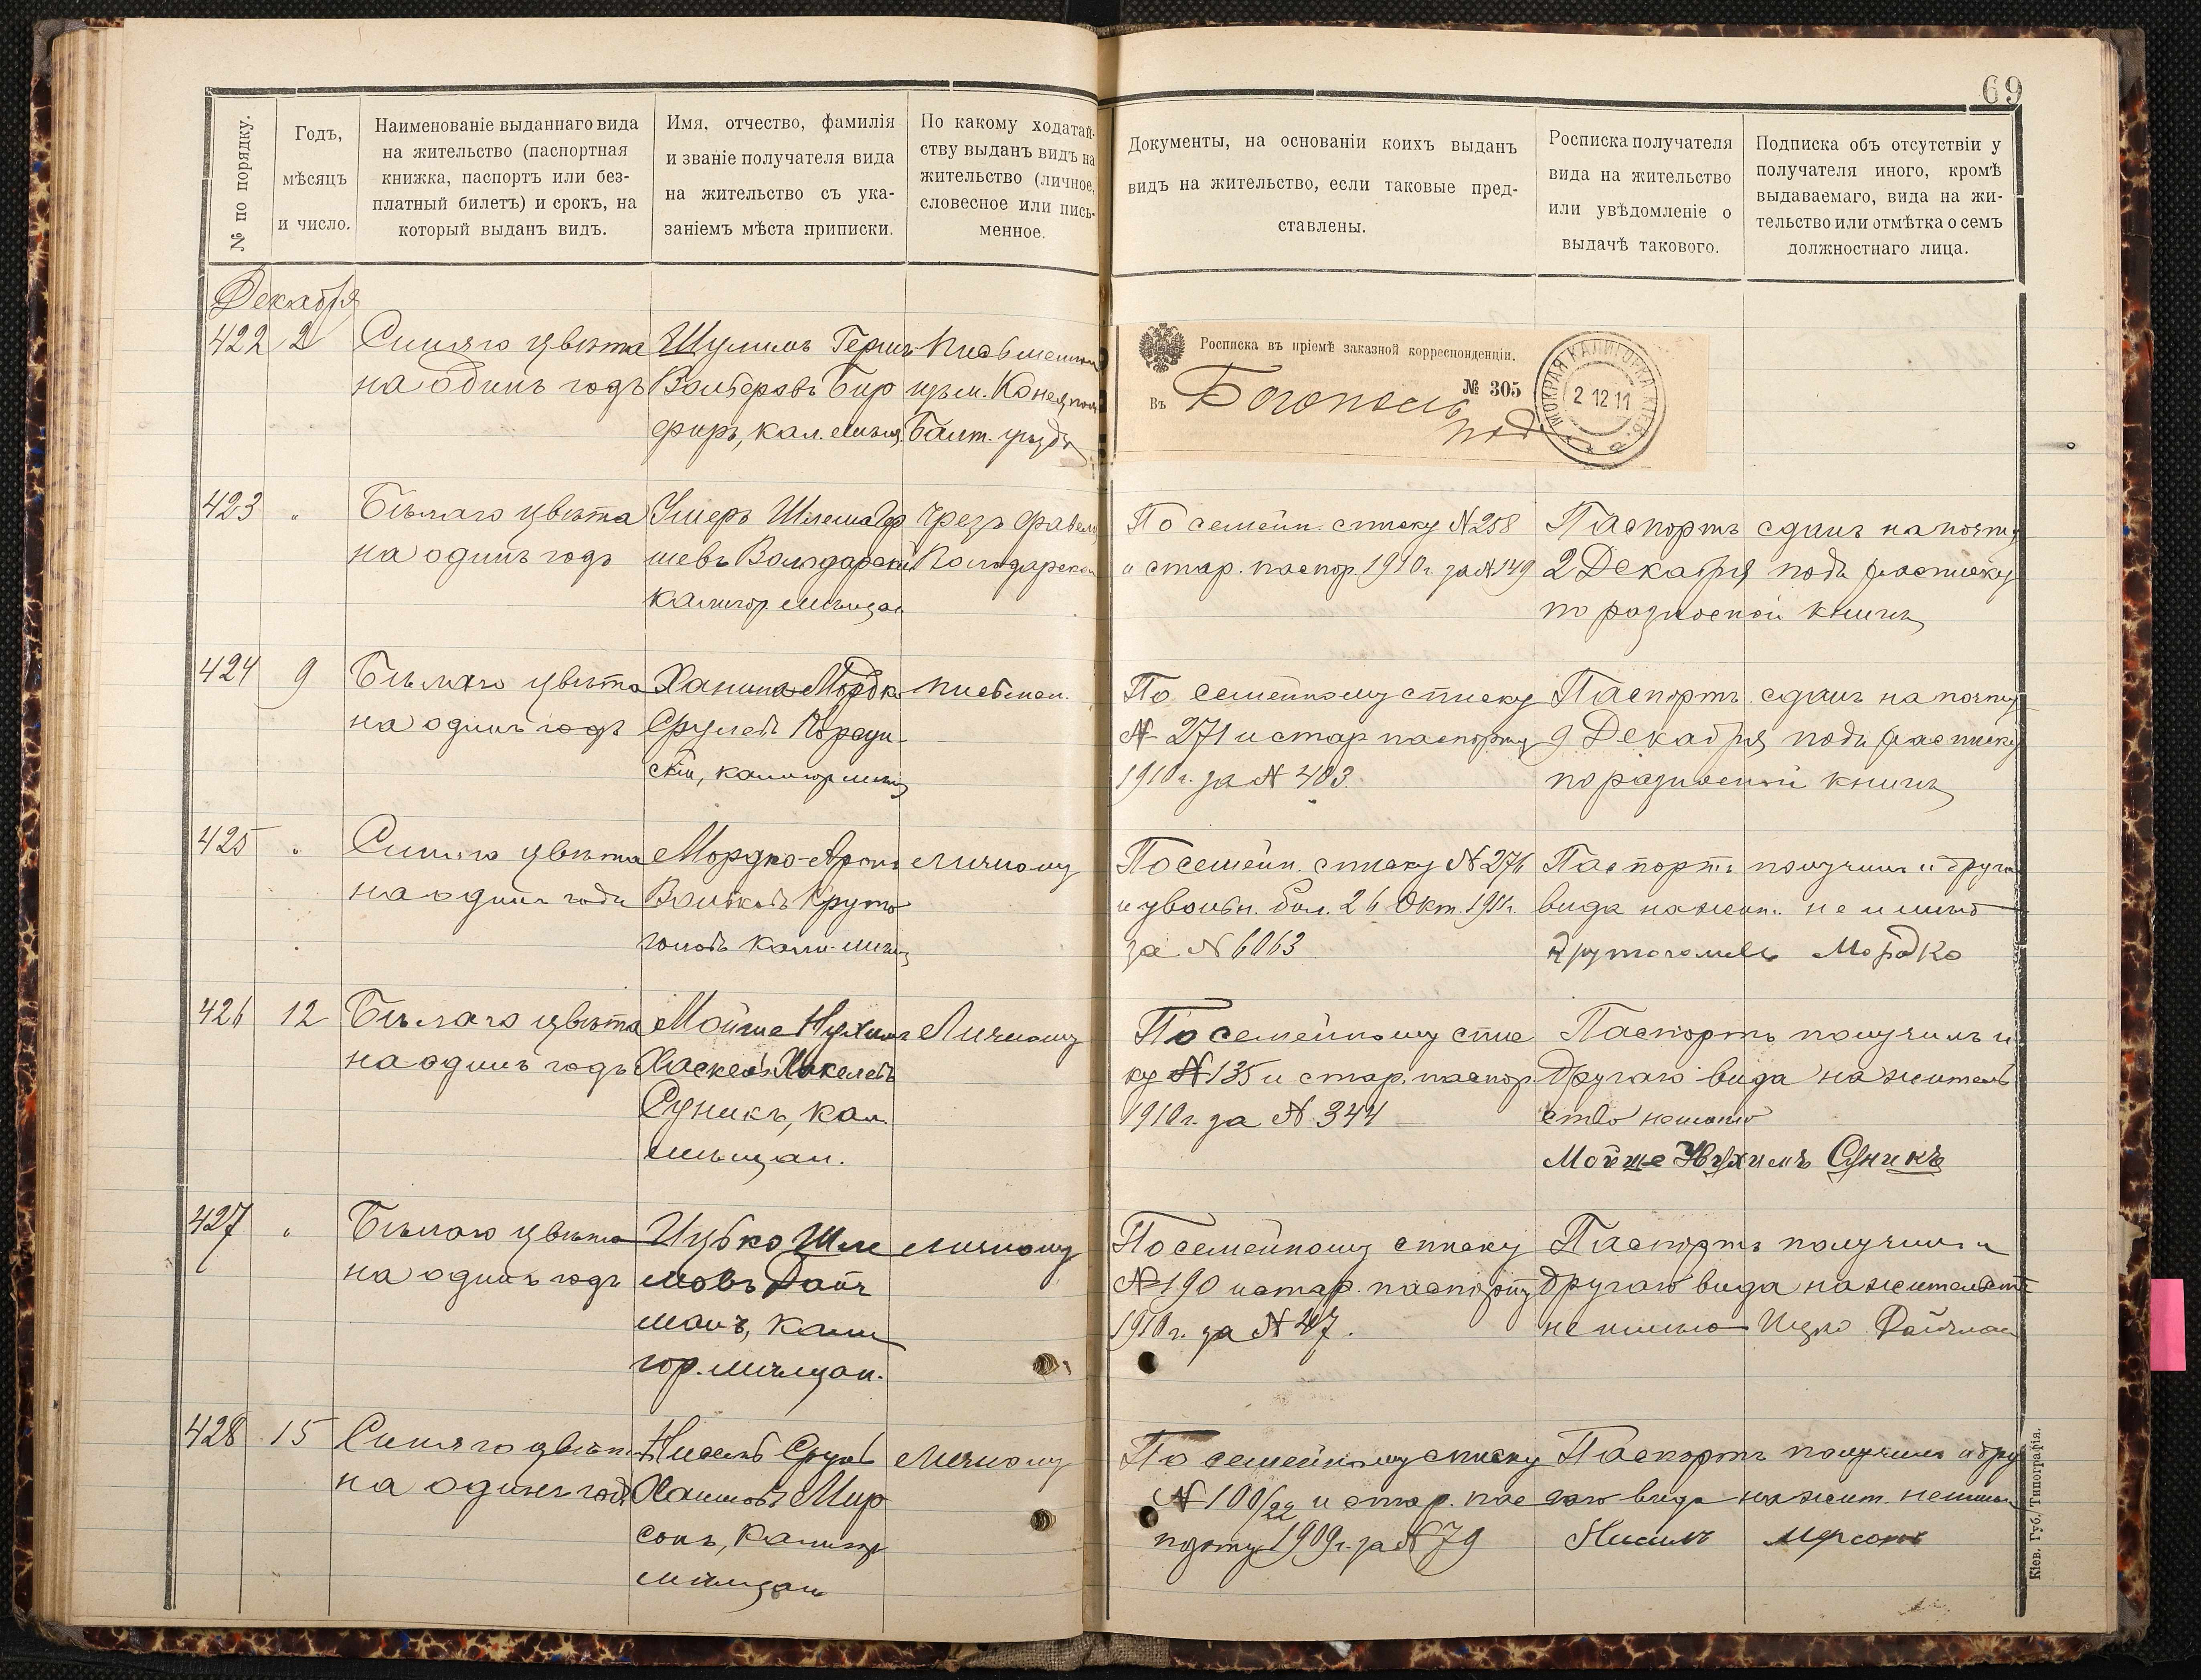 69
№ по порядку.
Годъ,
мѣсяцъ
и число.
Наименованіе выданнаго вида
на жительство (паспортная
книжка, паспортъ или без-
платный билетъ) и срокъ, на
который выданъ видъ.
Имя, отчество, фамилія
и званіе получателя вида
на жительство съ ука-
заніемъ мѣста приписки.
По какому ходатай-
ству выданъ видъ на
жительство (личное,
словесное или пись-
менное.
Документы, на основаніи коихъ выданъ
видъ на жительство, если таковые пред-
ставлены.
Росписка получателя
вида на жительство
или увѣдомленіе о
выдачѣ такового.
Подписка объ отсутствіи у
получателя иного, кромѣ
выдаваемаго, вида на жи-
тельство или отмѣтка о семъ
должностнаго лица.
Декабря
422
2
Синяго цвѣта
на одинъ годъ
Шулимъ Гершъ
Волберовъ Бир
фиръ, кал. мѣщ.
Письменн
изъ м.
Балт. уѣзда
Росписка въ пріемѣ заказной корреспонденціи.
№ 305
Въ Богополь
под
МОКРАЯ КАЛИГОРКА КІЕВ.
2 12 11
423
"
Бѣлаго цвѣта
на одинъ годъ
Умеръ Шлема
шевъ Володарскій
калигор мѣщан
Чрезъ
Володарско
По семейн. списку № 258
и стар. паспор. 1910 г. за № 149
Паспортъ сданъ на почту
2 Декабря подъ росписку
по разносной книгѣ
424
9
Бѣлаго цвѣта
на одинъ годъ
Ханина Мордк
Срулевъ Корсун
скій, калигор мѣщ
письмен.
По семейному списку
№ 271 и стар паспорту
1910 г. за № 403.
Паспортъ сданъ на почту
9 Декабря подъ расписку
по разносной книгѣ
425
"
Синяго цвѣта
на одинъ годъ
Мордко-Аронъ
Волковъ Круто
головъ кали. мѣщ
личному
По семейн. списку № 276
и увольн. бил. 26 Окт. 1911 г.
за № 6063
Паспортъ получилъ и другого
вида на жит. не имѣю
Крутоголовъ Мордко
426
12
Бѣлаго цвѣта
на одинъ годъ
Мойше Нухимъ
Хаскель Хакелевъ
Суникъ, кал.
мѣщан.
Личному
По семейному спис
ку № 135 и стар. паспор.
1910 г. за № 344
Паспортъ получилъ и
другаго вида на житель
ство не имѣю
Мойше Нухимъ Суникъ
427
"
Бѣлаго цвѣта
на одинъ годъ
Ицько Шле
мовъ Дайч
манъ, кали
гор. мѣщан.
личному
По семейному списку
№ 190 и стар. паспорту
1910 г. за № 407.
Паспортъ получилъ и
другаго вида на жительств
не имѣю Ицко Дайчман
428
15
Синяго цвѣта
на одинъ годъ
Нисель Срулъ
Хаимовъ Мир
сонъ, калигор
мѣщан
личному
По семейному списку
№ 100/22 и стар. пас
порту 1909 г. за № 79
Паспортъ получилъ и дру
гаго вида на жит. не имѣю
Нисилъ Мирсонъ
Кіев. Губ. Типографія.